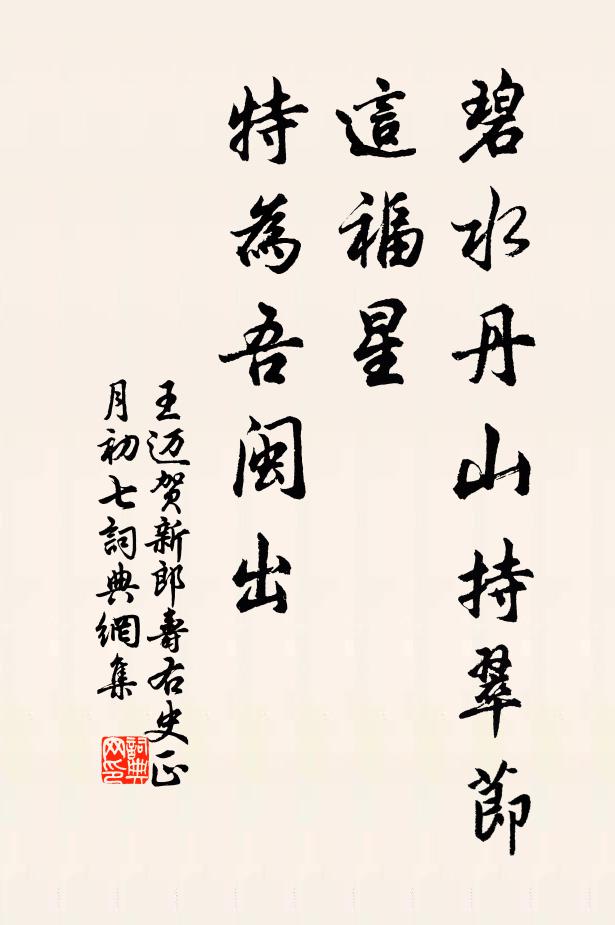 碧水丹山持翠節
這福星
特為吾閩出
王迈贺新郎壽右史正
月初七詞典網集
詞典网印